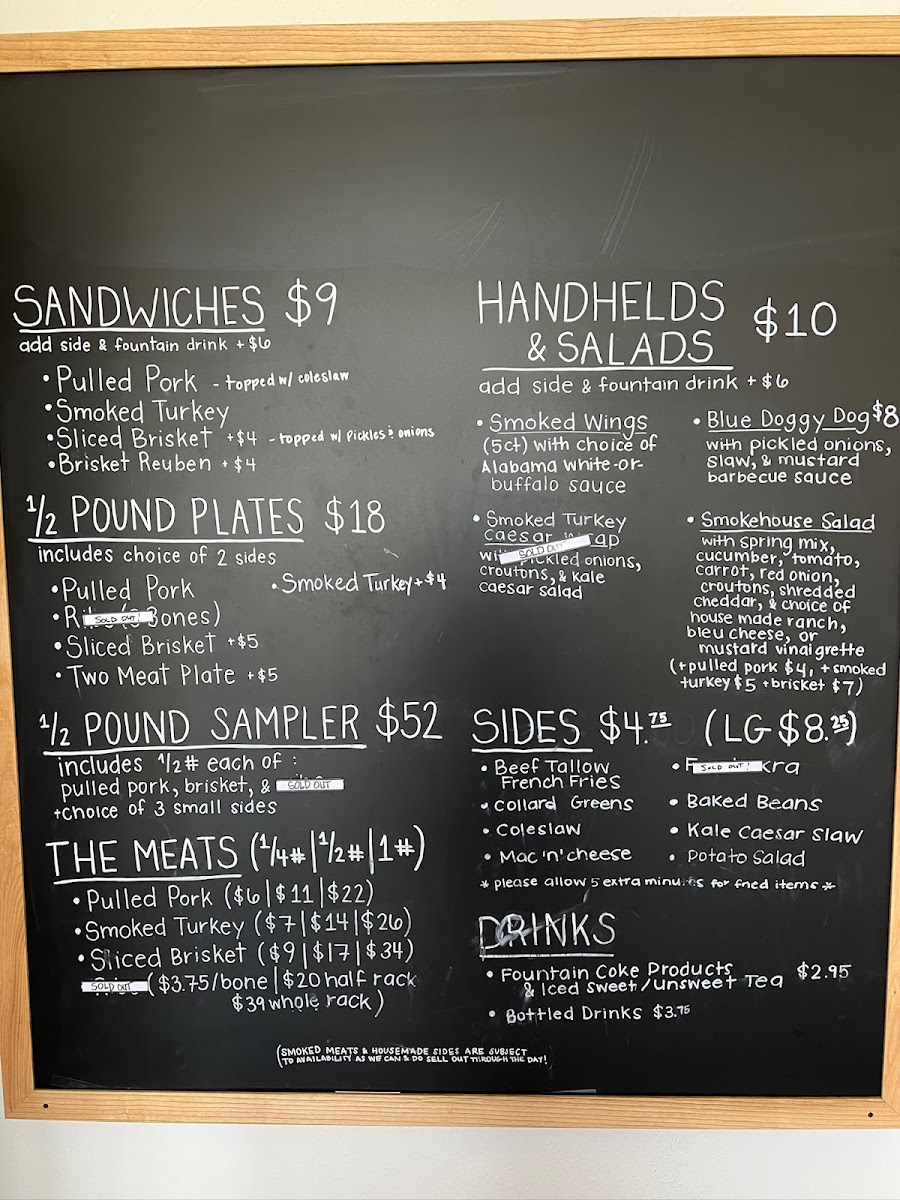 SANDWICHES $9
add side & fountain drink + $6
• Pulled Pork - topped w/ coleslaw
• Smoked Turkey
• Sliced Brisket +$4 - topped w/ pickles & onions
• Brisket Reuben + $4
1/2 POUND PLATES $18
includes choice of 2 sides
• Pulled Pork
• Smoked Turkey + $4
SOLD OUT! Bones)
• Sliced Brisket +$5
• Two Meat Plate +$5
1/2 POUND SAMPLER $52
includes 1/2# each of :
pulled pork, brisket, & SOLD OUT
+choice of 3 small sides
THE MEATS (1/4#|1/2#|1#)
• Pulled Pork ($6|$11|$22)
• Smoked Turkey ($7|$14|$26)
• Sliced Brisket ($9|$17|$34)
SOLD OUT ($3.75/bone|$20 half rack
$39 whole rack)
HANDHELDS
& SALADS $10
add side & fountain drink + $6
• Smoked Wings
(5ct) with choice of
Alabama white-or-
buffalo sauce
• Blue Doggy Dog $8
with pickled onions,
slaw, & mustard
barbecue sauce
• Smoked Turkey
Caesar Wrap
SOLD OUT
pickled onions,
croutons, & kale
caesar salad
• Smokehouse Salad
with spring mix,
cucumber, tomato,
carrot, red onion,
croutons, shredded
cheddar, & choice of
house made ranch,
bleu cheese, or
mustard vinaigrette
(+pulled pork $4, +smoked
turkey $5 +brisket $7)
SIDES $4.75 (LG $8.25)
• Beef Tallow
French Fries
• Collard Greens
• Coleslaw
• Mac 'n' cheese
• SOLD OUT!
• Baked Beans
• Kale Caesar Slaw
• Potato Salad
* please allow 5 extra minutes for fried items *
DRINKS
• Fountain Coke Products $2.95
& Iced Sweet/Unsweet Tea
• Bottled Drinks $3.75
(SMOKED MEATS & HOUSEMADE SIDES ARE SUBJECT
TO AVAILABILITY AS WE CAN & DO SELL OUT THROUGH THE DAY!)